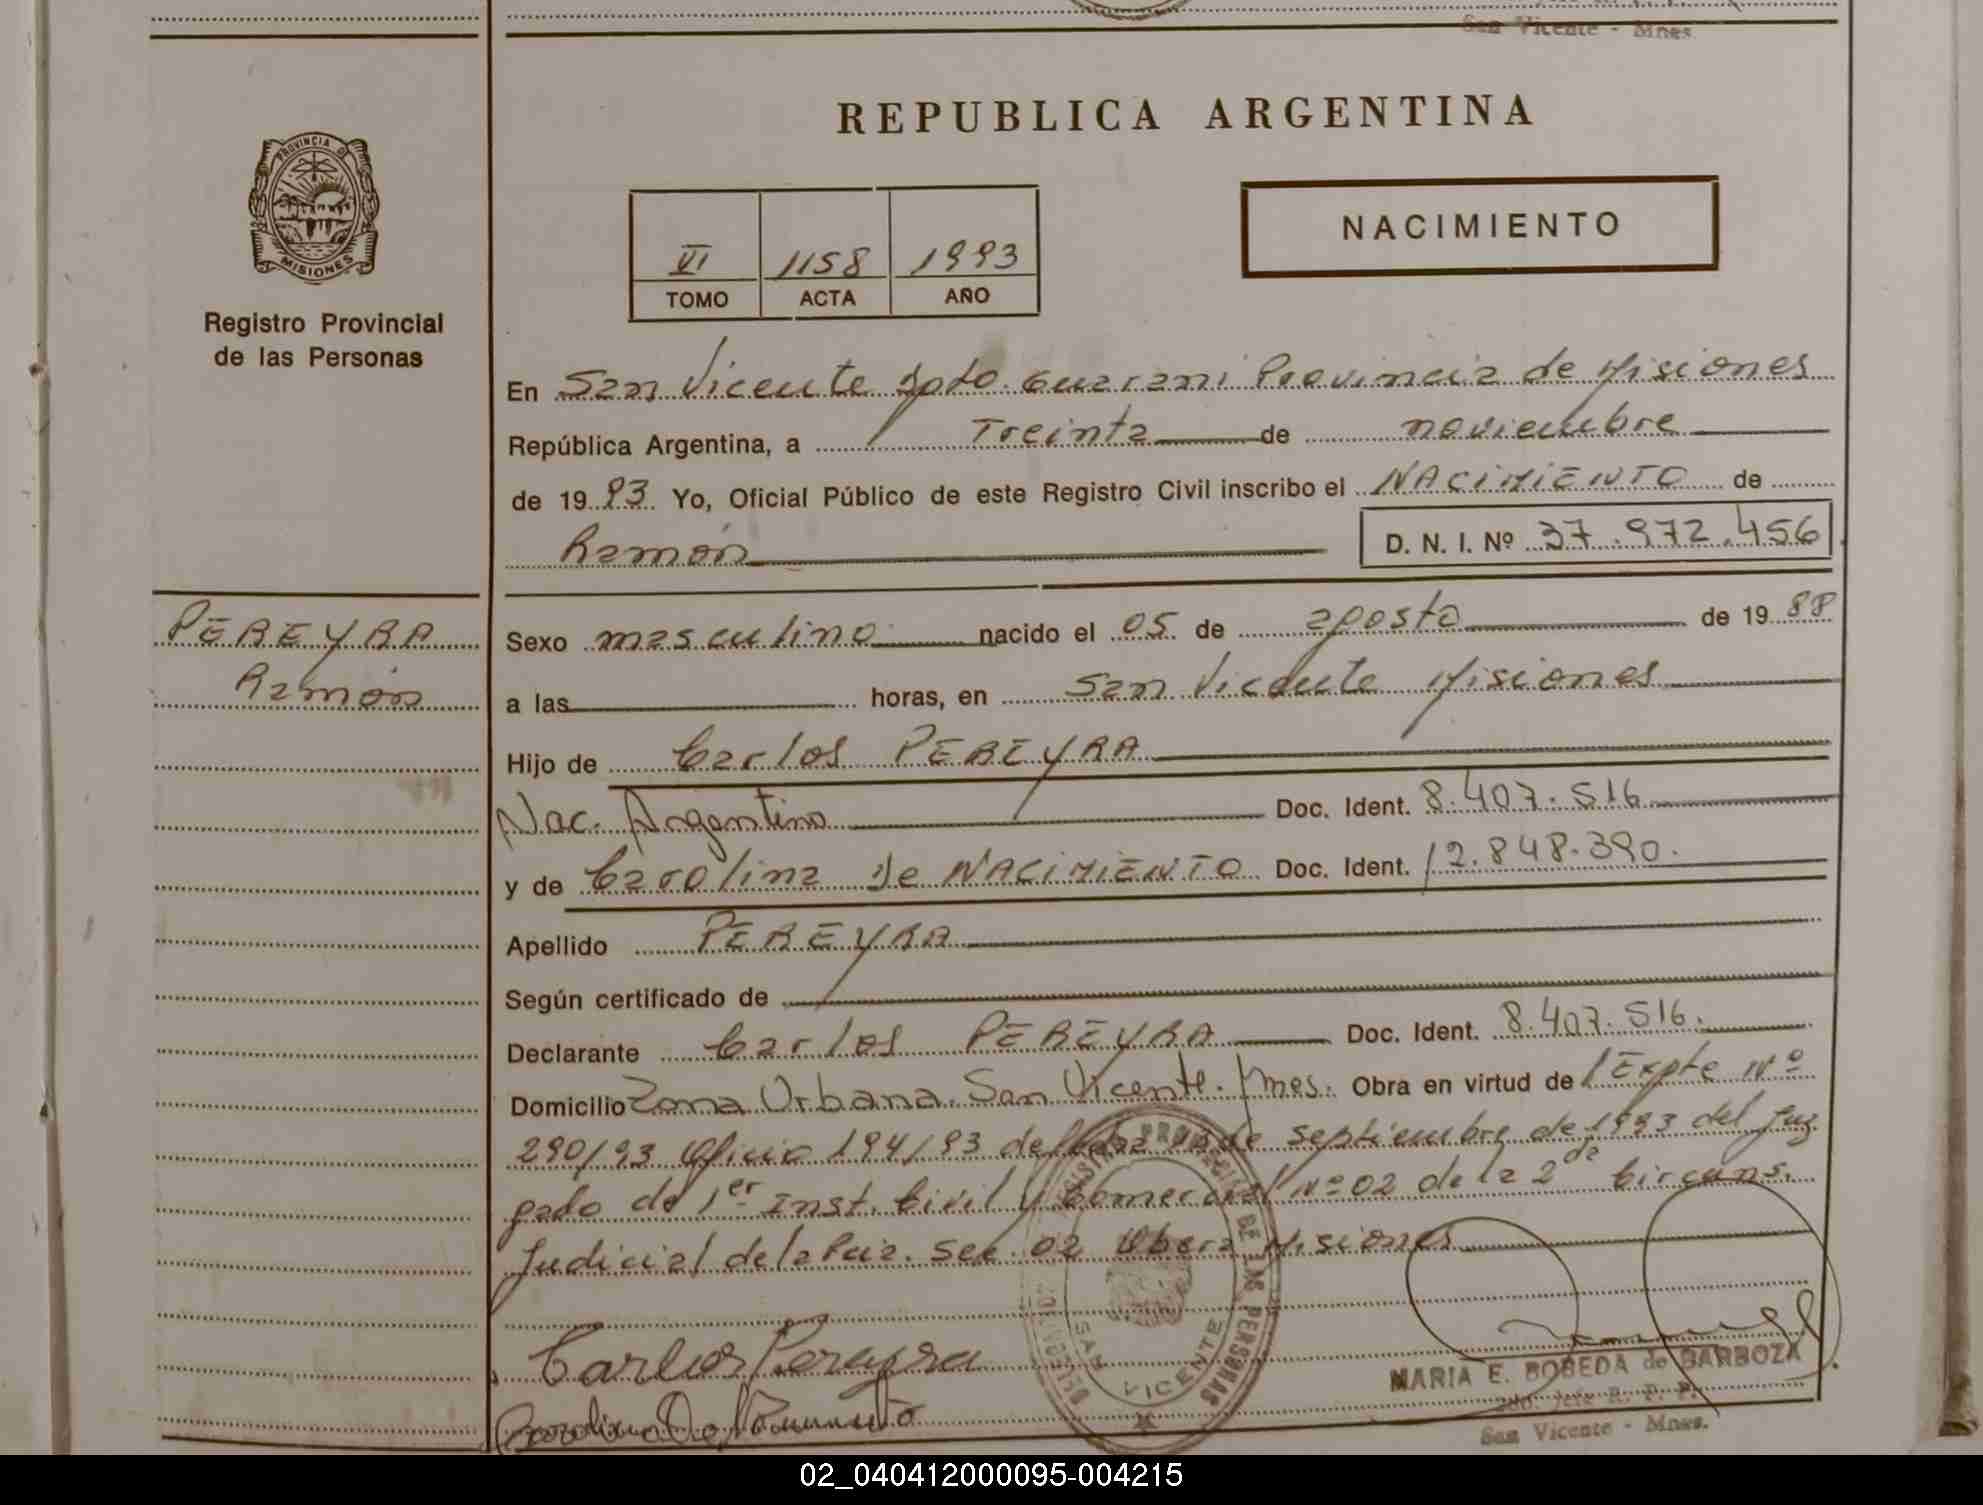 San Vicente - Mnes.
REPUBLICA ARGENTINA
PROVINCIA DE
MISIONES
Registro Provincial
de las Personas
VI 1158 1993
TOMO ACTA AÑO
NACIMIENTO
En San Vicente Dpto. Guarani Provincia de Misiones
República Argentina, a Treinta de noviembre
de 1993 Yo, Oficial Público de este Registro Civil inscribo el NACIMIENTO de
Ramón
D. N. I. Nº 37.972.456
PEREYRA
Ramón
Sexo masculino nacido el 05 de agosto de 1988
a las horas, en San Vicente Misiones
Hijo de Carlos PEREYRA
Nac. Argentino Doc. Ident. 8.407.516
y de Carolina De NACIMIENTO Doc. Ident. 12.848.390.
Apellido PEREYRA
Según certificado de
Declarante Carlos PEREYRA Doc. Ident. 8.407.516.
Domicilio Zona Urbana. San Vicente. Mnes. Obra en virtud del Expte Nº
290/93 Oficio 194/93 de septiembre de 1993 del Juz
gado de 1er Inst. Civil y Comercial Nº 02 de la 2da Circuns.
Judicial de la Pcia. Sec. 02 Obera Misiones
REGISTRO PROVINCIAL DE LAS PERSONAS
DELEGACION
SAN VICENTE
Carlos Pereyra
MARIA E. BOBEDA de BARBOZA
2do. Jefe R. P. P.
San Vicente - Mnes.
02_040412000095-004215